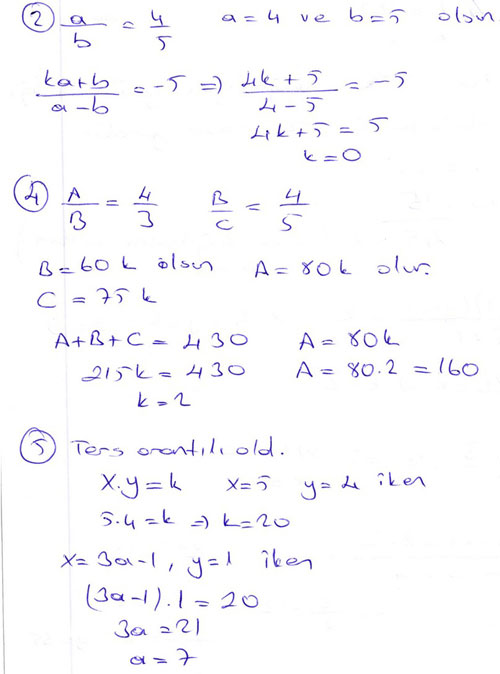 ② a/b = 4/5   a = 4 ve b = 5 olsun
(ka+b)/(a-b) = -5 ⇒ (4k+5)/(4-5) = -5
4k+5 = 5
k = 0
④ A/B = 4/3   B/C = 4/5
B = 60k olsun   A = 80k olur.
C = 75k
A+B+C = 430   A = 80k
215k = 430   A = 80.2 = 160
k = 2
⑤ Ters orantılı old.
x.y = k   x = 5   y = 4 iken
5.4 = k ⇒ k = 20
x = 3a-1, y = 1 iken
(3a-1).1 = 20
3a = 21
a = 7